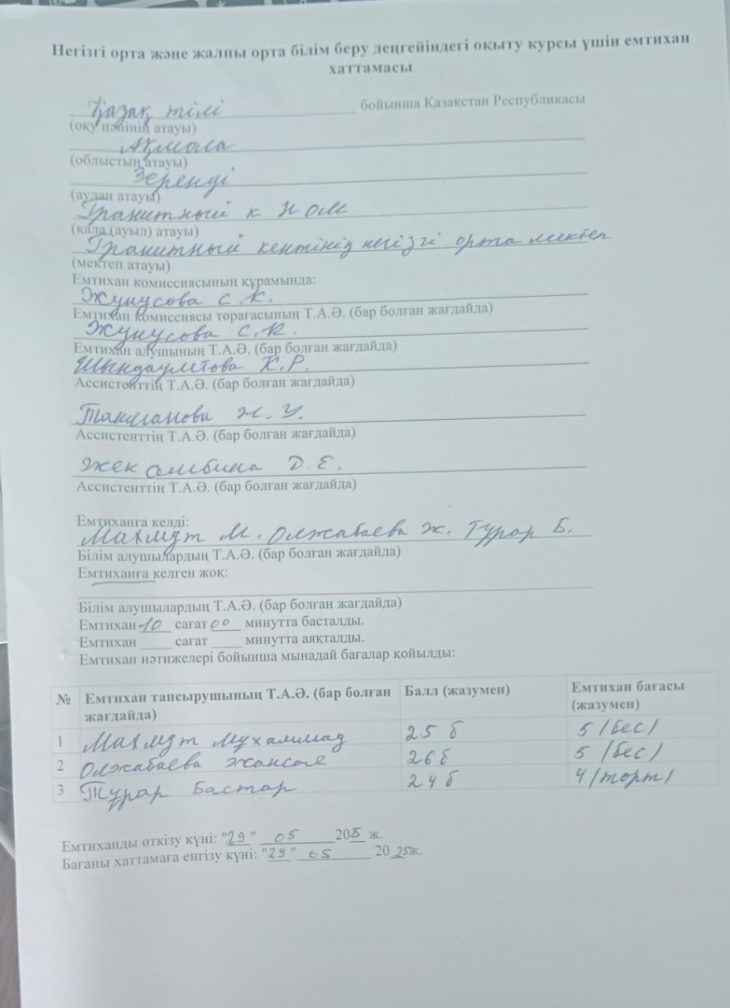 Негізгі орта және жалпы орта білім беру деңгейіндегі оқыту курсы үшін емтихан
хаттамасы
Қазақ тілі бойынша Қазақстан Республикасы
(оқу пәнінің атауы)
Ақмола
(облыстың атауы)
Зеренді
(аудан атауы)
Гранитный к
(қала (ауыл) атауы)
Гранитный кентінің негізгі орта мектеп
(мектеп атауы)
Емтихан комиссиясының құрамында:
Жунусова С.К.
Емтихан комиссиясы төрағасының Т.А.Ә. (бар болған жағдайда)
Жунусова С.К.
Емтихан алушының Т.А.Ә. (бар болған жағдайда)
Шындаулетова К.Р.
Ассистенттің Т.А.Ә. (бар болған жағдайда)
Ж.У.
Ассистенттің Т.А.Ә. (бар болған жағдайда)
Д.Е.
Ассистенттің Т.А.Ә. (бар болған жағдайда)
Емтиханға келді:
Махмұт М. Олжабаева Ж. Тұрар Б.
Білім алушылардың Т.А.Ә. (бар болған жағдайда)
Емтиханға келген жоқ:
Білім алушылардың Т.А.Ә. (бар болған жағдайда)
Емтихан 10 сағат 00 минутта басталды.
Емтихан ____ сағат ____ минутта аяқталды.
Емтихан нәтижелері бойынша мынадай бағалар қойылды:
№ Емтихан тапсырушының Т.А.Ә. (бар болған жағдайда) Балл (жазумен) Емтихан бағасы (жазумен)
1 Махмұт Мұхаммад 25 б 5 /бес/
2 Олжабаева Жансая 26 б 5 /бес/
3 Тұрар Бастар 24 б 4 /төрт/
Емтиханды өткізу күні: "29" 05 2025 ж.
Бағаны хаттамаға енгізу күні: "29" 05 2025ж.